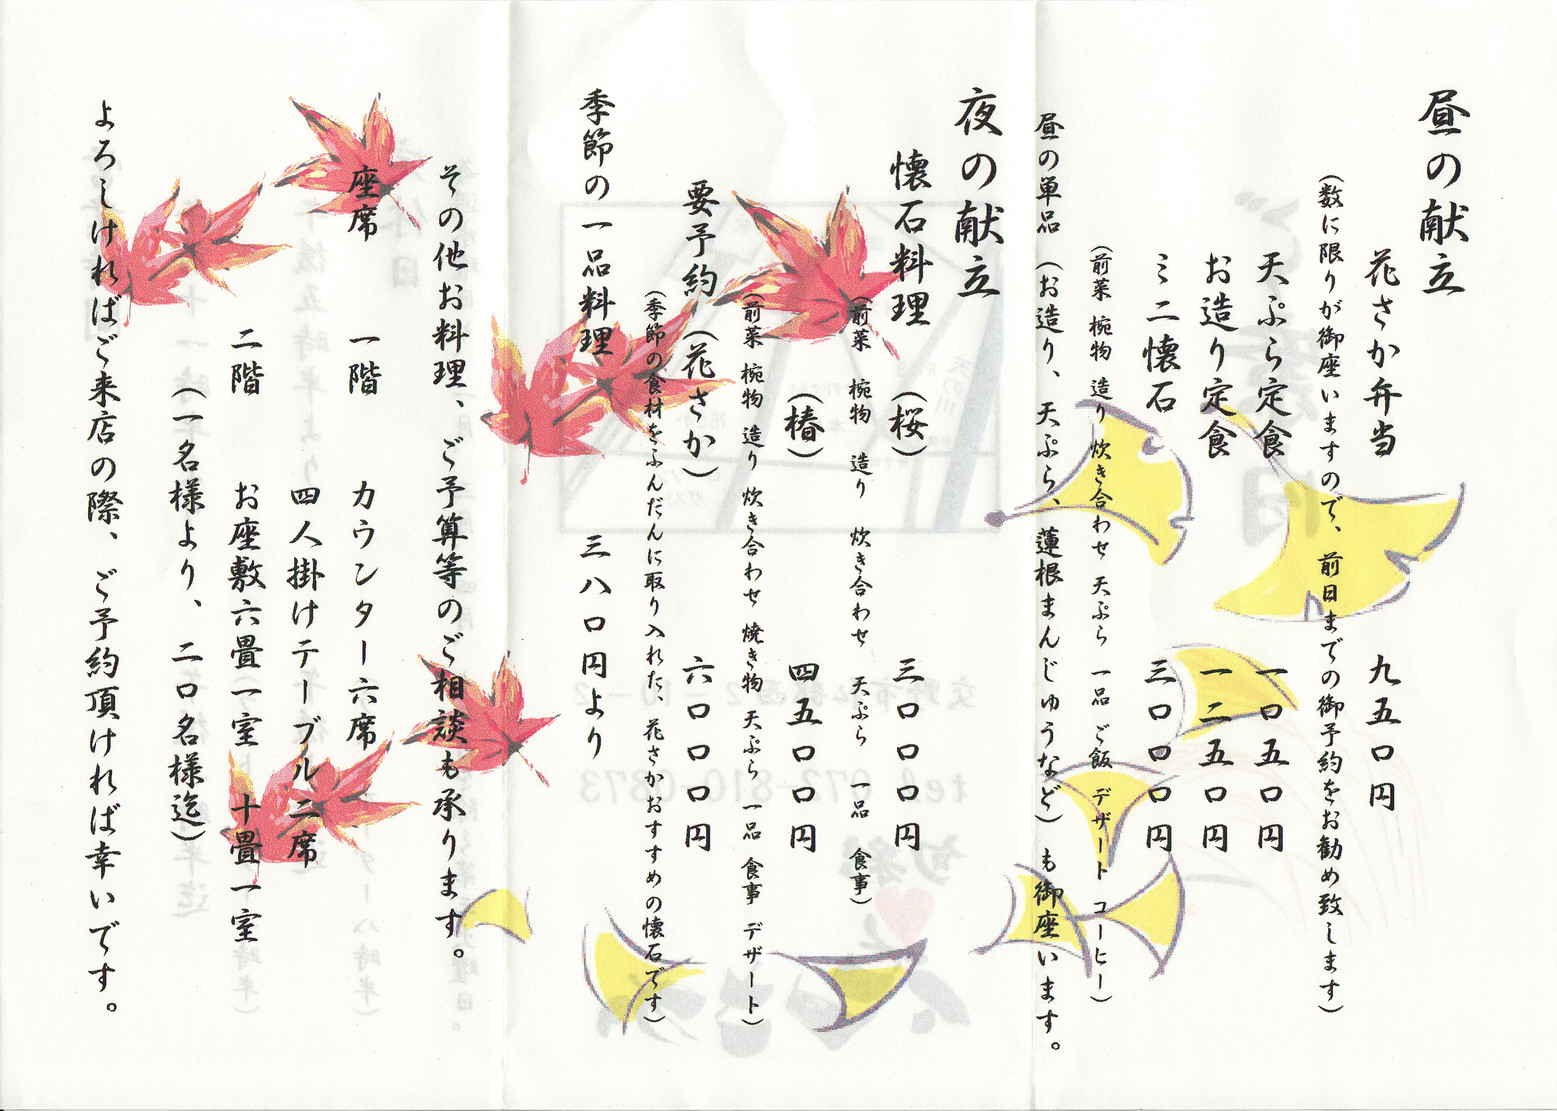 昼の献立
花さか弁当 九五〇円
（数に限りが御座いますので、前日までの御予約をお勧め致します）
天ぷら定食 一〇五〇円
お造り定食 一二五〇円
ミニ懐石 三〇〇〇円
（前菜 椀物 造り 炊き合わせ 天ぷら 一品 ご飯 デザート コーヒー）
昼の単品（お造り、天ぷら、蓮根まんじゅうなど）も御座います。
夜の献立
懐石料理（桜） 三〇〇〇円
（前菜 椀物 造り 炊き合わせ 天ぷら 一品 食事）
（椿） 四五〇〇円
（前菜 椀物 造り 炊き合わせ 焼き物 天ぷら 一品 食事 デザート）
要予約（花さか） 六〇〇〇円
（季節の食材をふんだんに取り入れた、花さかおすすめの懐石です）
季節の一品料理 三八〇円より
その他お料理、ご予算等のご相談も承ります。
座席 一階 カウンター六席
四人掛けテーブル二席
二階 お座敷六畳一室 十畳一室
（一名様より、二〇名様迄）
よろしければご来店の際、ご予約頂ければ幸いです。